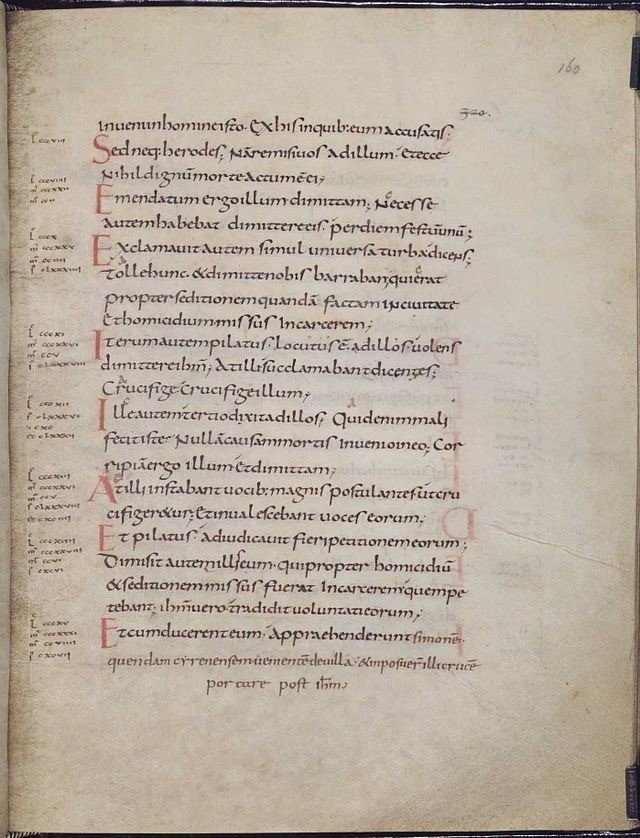 160
320.
invenio in homine isto. Ex his in quib: eum accusatis.
Sed neq: herodes; Nā remisi vos ad illum. Et ecce
Nihil dignum morte actum e ei;
Emendatum ergo illum dimittam; Necesse
autem habebat dimittere eis. per diem festū unū;
Exclamavit autem simul universa turba dicens;
Tolle hunc. & dimitte nobis barraban; qui erat
propter seditionem quandā factam in civitate
Et homicidium missus In carcerem;
Iterum autem pilatus. locutus ē. ad illos. volens
dimittere ihm̄; At illi succlamabant dicentes;
Crucifige Crucifige illum;
Ille autem tertio dixit ad illos; Quid enim mali
fecit iste; Nullā causam mortis invenio in eo; Cor
ripiā ergo illum et dimittam;
At illi instabant vocib: magnis postulantes ut cru
cifigeretur; Et invalescebant voces eorum;
Et pilatus. adiudicavit fieri petitionem eorum;
Dimisit autem illis eum. qui propter homicidiū
& seditionem missus fuerat In carcerem; quem pe
tebant. ihm̄ vero. tradidit voluntati eorum;
Et cum ducerent eum. Appraehenderunt simonē.
quendam cyrenensem venientē de villa. & inposuer̄ illi crucē
portare post ihm̄;